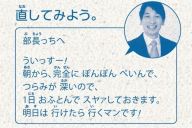 直してみよう。
部長っちへ
ういっすー!
朝から、完全に ぽんぽん ぺいんで、
つらみが 深いので、
1日 おふとんで スヤァしておきます。
明日は 行けたら 行くマンです!